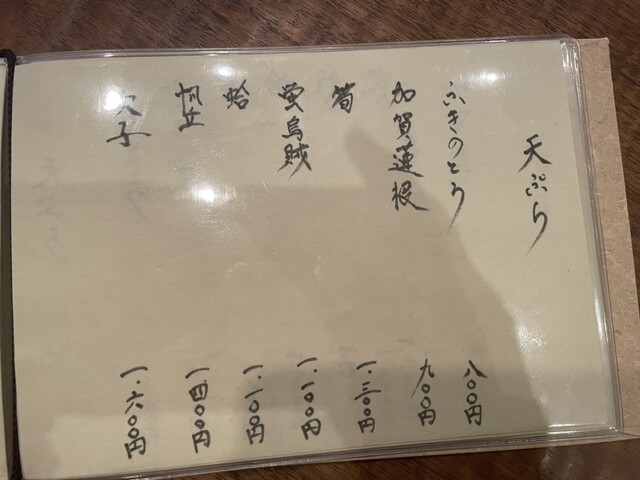 天ぷら
ふきのとう
八〇〇円
加賀蓮根
九〇〇円
筍
一.三〇〇円
螢烏賊
一.一〇〇円
蛤
一.一〇〇円
帆立
一四〇〇円
穴子
一.六〇〇円